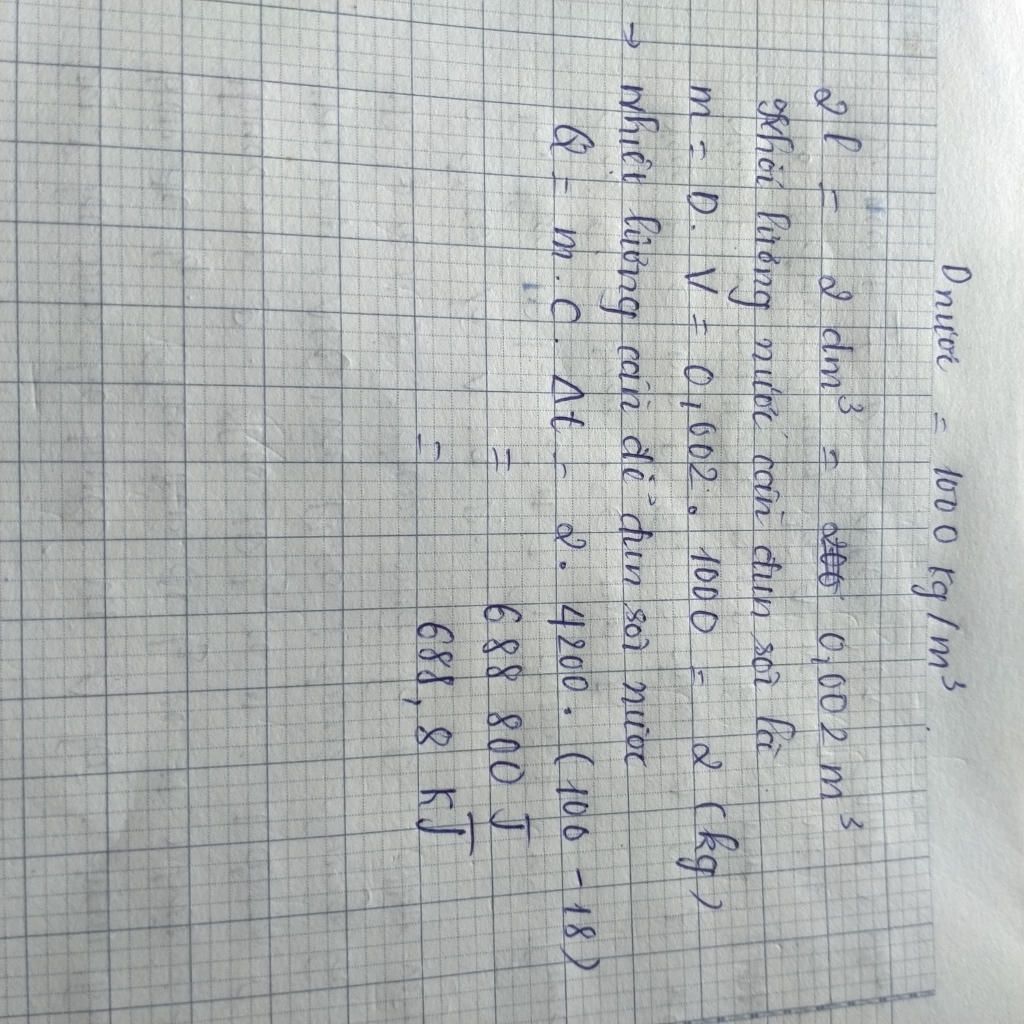 D nước = 1000 kg/m³
2l = 2 dm³ = 0,002 m³
Khối lượng nước cần đun sôi là
m = D. V = 0,002. 1000 = 2 (kg)
→ Nhiệt lượng cần để đun sôi nước
Q = m. C. Δt = 2. 4200. (100 - 18)
= 688 800 J
= 688, 8 KJ